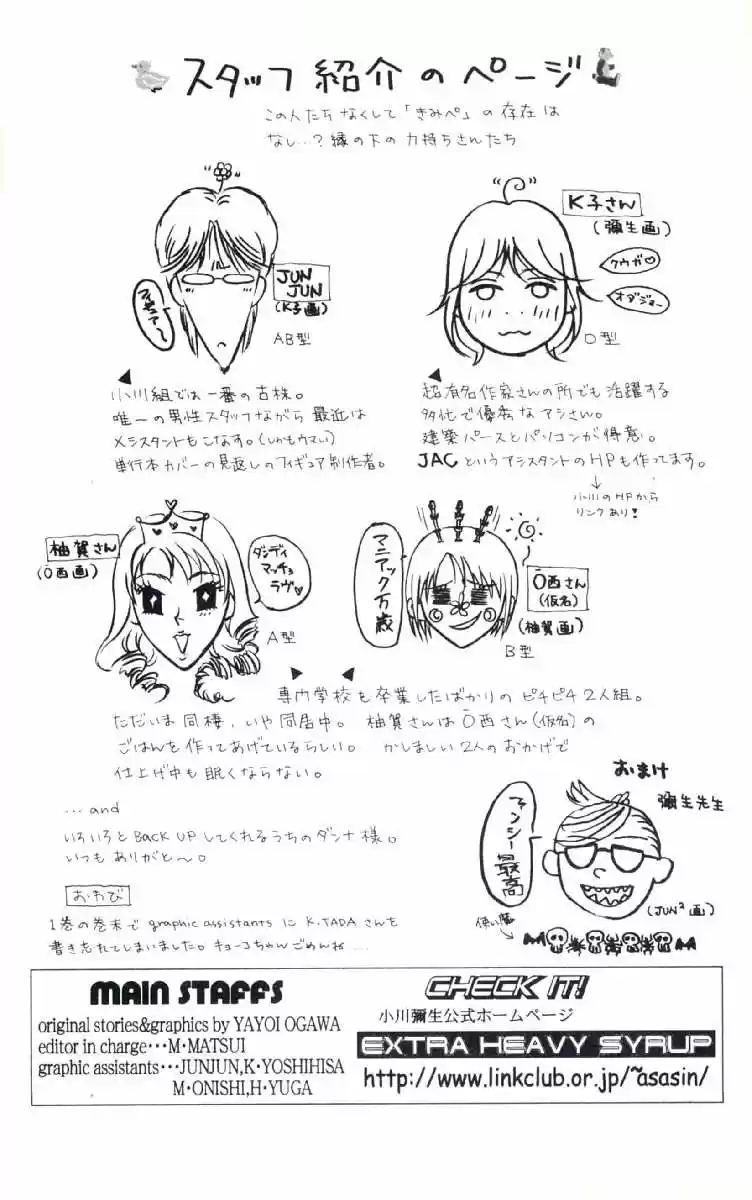 スタッフ紹介のページ
この人たちなくして「きみぺ」の存在は
なし…?縁の下の力持ちさんたち
JUN
JUN
(K子画)
フィギュア〜
AB型
小川組では一番の古株。
唯一の男性スタッフながら最近は
メシスタントもこなす。(しかもウマい)
単行本カバーの見返しのフィギュア制作者。
K子さん
(彌生画)
クウガ♡
オダジョー
O型
超有名作家さんの所でも活躍する
多忙で優秀なアシさん。
建築パースとパソコンが得意。
JACというアシスタントのHPも作ってます。
↓
小川のHPから
リンクあり!
柚賀さん
(O西画)
ダンディ
マッチョ
ラヴ♡
A型
マニアック万歳
O西さん
(仮名)
(柚賀画)
B型
専門学校を卒業したばかりのピチピチ2人組。
ただいま同棲、いや同居中。柚賀さんはO西さん(仮名)の
ごはんを作ってあげているらしい。かしましい2人のおかげで
仕上げ中も眠くならない。
…and
いろいろとBACK UPしてくれるうちのダンナ様。
いつもありがと〜。
おわび
1巻の巻末でgraphic assistantsにK.TADAさんを
書き忘れてしまいました。キョーコちゃんごめんね…
おまけ
彌生先生
ファンシー最高
(JUN²画)
MAIN STAFFS
original stories&graphics by YAYOI OGAWA
editor in charge・・・M・MATSUI
graphic assistants・・・JUNJUN,K・YOSHIHISA
M・ONISHI,H・YUGA
CHECK IT!
小川彌生公式ホームページ
EXTRA HEAVY SYRUP
http://www.linkclub.or.jp/~asasin/